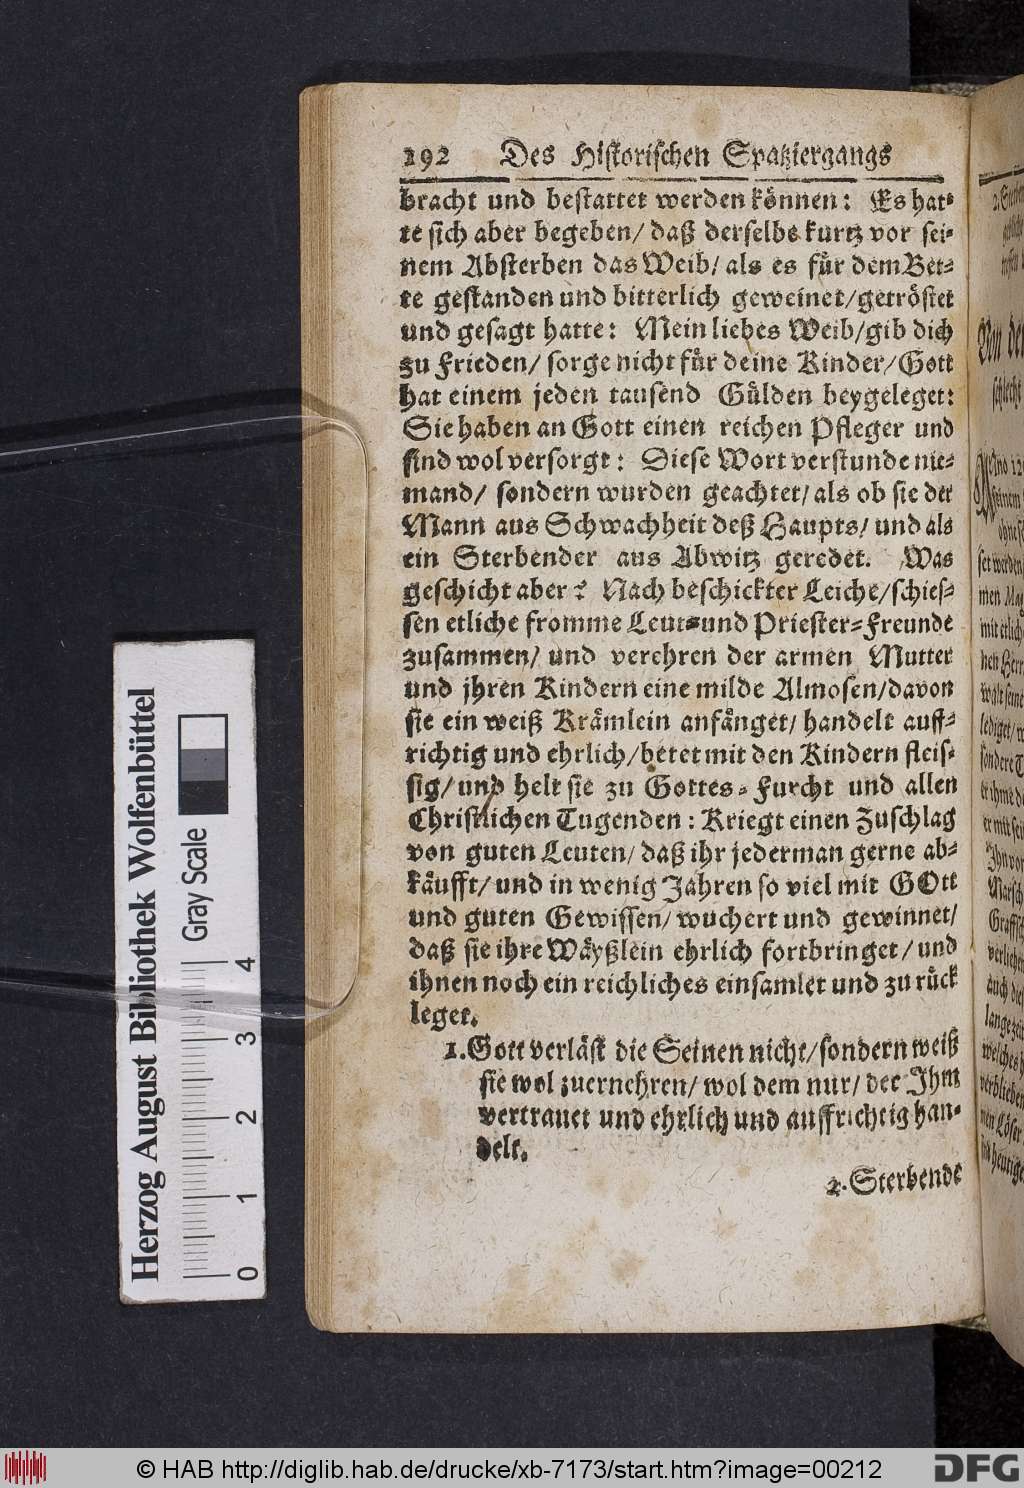 192 Des Historischen Spatziergangs
bracht und bestattet werden können: Es hat-
te sich aber begeben/ daß derselbe kurtz vor sei-
nem Absterben das Weib/ als es für dem Bet-
te gestanden und bitterlich geweinet/getröstet
und gesagt hatte: Mein liebes Weib/gib dich
zu Frieden/ sorge nicht für deine Kinder/Gott
hat einem jeden tausend Gülden beygeleget:
Sie haben an Gott einen reichen Pfleger und
sind wol versorgt: Diese Wort verstunde nie-
mand/ sondern wurden geachtet/als ob sie der
Mann aus Schwachheit deß Haupts/ und als
ein Sterbender aus Abwitz geredet. Was
geschicht aber? Nach beschickter Leiche/schies-
sen etliche fromme Leut-und Priester-Freunde
zusammen/ und verehren der armen Mutter
und jhren Kindern eine milde Almosen/davon
sie ein weiß Krämlein anfänget/ handelt auff-
richtig und ehrlich/betet mit den Kindern fleis-
sig/ und helt sie zu Gottes-Furcht und allen
Christlichen Tugenden: Kriegt einen Zuschlag
von guten Leuten/ daß ihr jederman gerne ab-
käufft/ und in wenig Jahren so viel mit GOtt
und guten Gewissen/ wuchert und gewinnet/
daß sie ihre Wäyßlein ehrlich fortbringet/ und
ihnen noch ein reichliches einsamlet und zu rück
leget.
1. Gott verläst die Seinen nicht/sondern weiß
sie wol zuernehren/ wol dem nur/ der Ihm
vertrauet und ehrlich und auffrichtig han-
delt.
2. Sterbende
Herzog August Bibliothek Wolfenbüttel
Gray Scale
0 1 2 3 4
© HAB http://diglib.hab.de/drucke/xb-7173/start.htm?image=00212
DFG